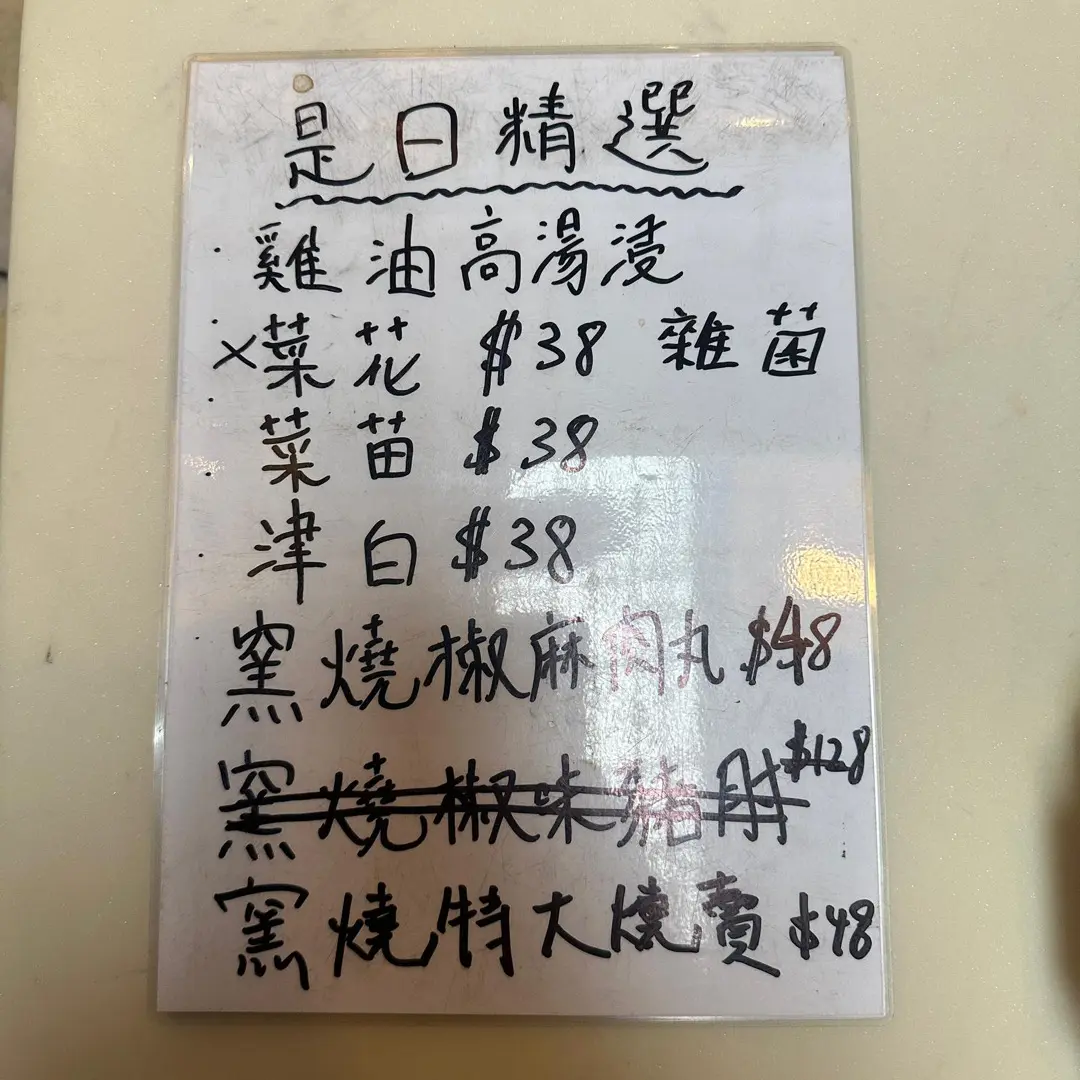 是日精選
雞油高湯浸
×菜花 $38 雜菌
菜苗 $38
津白 $38
窯燒椒麻肉丸 $48
窯燒椒味豬肘 $128
窯燒特大燒賣 $48